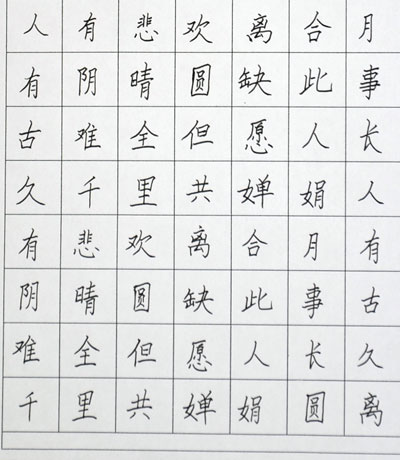 人有悲欢离合月
有阴晴圆缺此事
古难全但愿人长
久千里共婵娟人
有悲欢离合月有
阴晴圆缺此事古
难全但愿人长久
千里共婵娟圆离